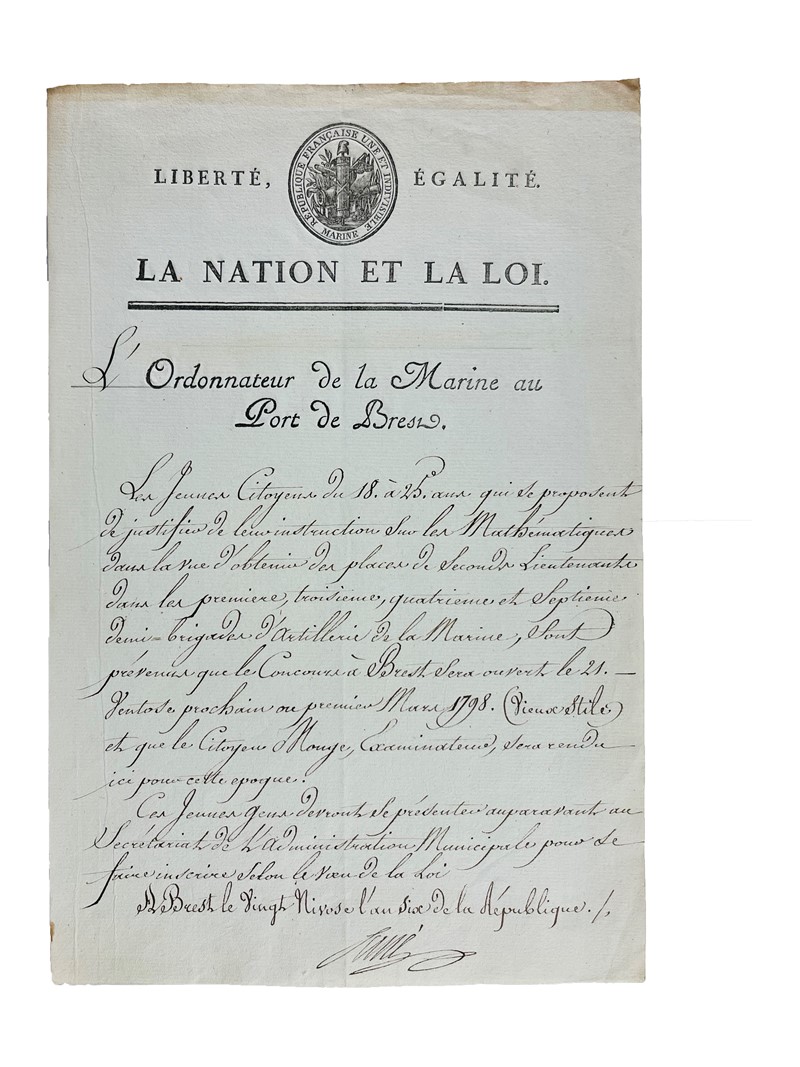 LIBERTÉ, ÉGALITÉ.
RÉPUBLIQUE FRANÇAISE UNE ET INDIVISIBLE
MARINE
LA NATION ET LA LOI.
L'Ordonnateur de la Marine au
Port de Brest.
Les Jeunes Citoyens du 18. à 25. ans qui se proposent
de justifier de leur instruction Sur les Mathématiques
dans la vue d'obtenir des places de Seconds Lieutenants
dans les premiere, troisième, quatrieme et Septième
demi-brigades d'Artillerie de la Marine, Sont
prévenus que le Concours à Brest Sera ouvert le 21.
Ventose prochain ou premier Mars 1798. (Vieux Stile)
et que le Citoyen Monge, Examinateur, sera rendu
ici pour cette epoque.
Ces Jeunes gens devront se présenter auparavant au
Secrétariat de L'Administration Municipale pour se
faire inscrire selon le vœu de la Loi
A Brest le Vingt Nivose l'an Six de la République. /.
Sané